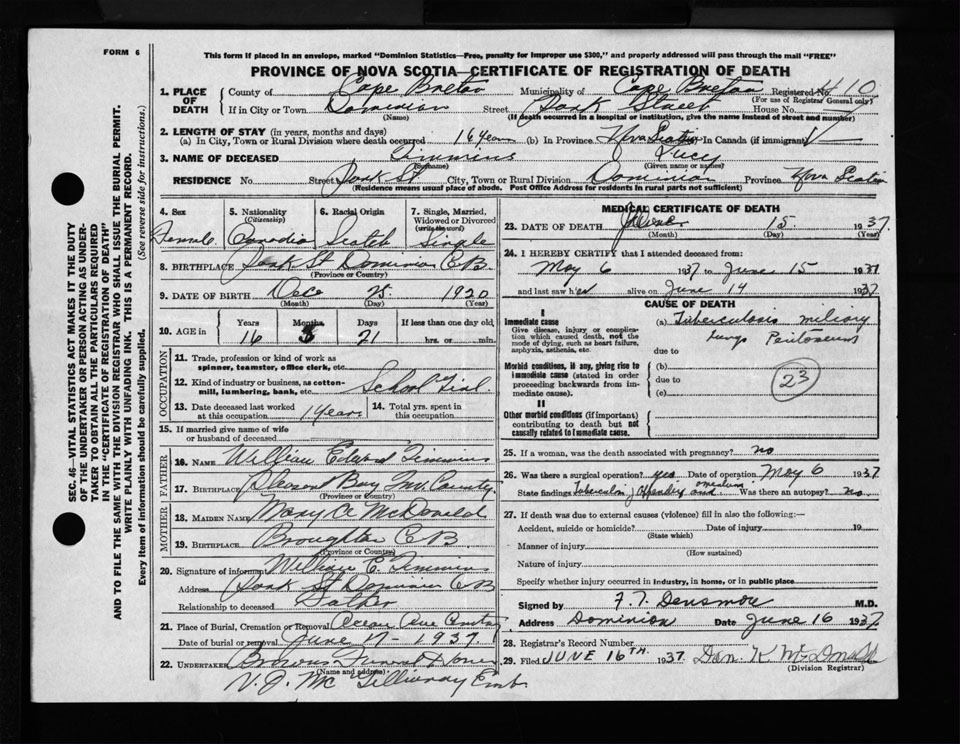 FORM 6
This form if placed in an envelope, marked "Dominion Statistics—Free, penalty for improper use $300," and properly addressed will pass through the mail "FREE"
PROVINCE OF NOVA SCOTIA—CERTIFICATE OF REGISTRATION OF DEATH
SEC. 46—VITAL STATISTICS ACT MAKES IT THE DUTY
OF THE UNDERTAKER OR PERSON ACTING AS UNDER-
TAKER TO OBTAIN ALL THE PARTICULARS REQUIRED
IN THE "CERTIFICATE OF REGISTRATION OF DEATH"
AND TO FILE THE SAME WITH THE DIVISION REGISTRAR WHO SHALL ISSUE THE BURIAL PERMIT.
WRITE PLAINLY WITH UNFADING INK. THIS IS A PERMANENT RECORD.
Every item of information should be carefully supplied. (See reverse side for instructions.)
1. PLACE OF DEATH County of Cape Breton Municipality of Cape Breton Registered No. 10
(For use of Registrar General only)
If in City or Town Dominion Street Park Street House No.
(Name) (If death occurred in a hospital or institution, give the name instead of street and number)
2. LENGTH OF STAY (in years, months and days)
(a) In City, Town or Rural Division where death occurred 16 years (b) In Province Nova Scotia (c) In Canada (if immigrant)
3. NAME OF DECEASED Timmins Lucy
(Surname) (Given name or names)
RESIDENCE No. Street Park St City, Town or Rural Division Dominion Province Nova Scotia
(Residence means usual place of abode. Post Office Address for residents in rural parts not sufficient)
4. Sex Female
5. Nationality (Citizenship) Canadian
6. Racial Origin Scotch
7. Single, Married, Widowed or Divorced (write the word) Single
8. BIRTHPLACE Park St Dominion C.B.
(Province or Country)
9. DATE OF BIRTH Dec 25 1920
(Month) (Day) (Year)
10. AGE in Years 16 Months 5 Days 21 If less than one day old, hrs. or min.
OCCUPATION
11. Trade, profession or kind of work as spinner, teamster, office clerk, etc.
12. Kind of industry or business, as cotton-mill, lumbering, bank, etc. School Girl
13. Date deceased last worked at this occupation 1 year 14. Total yrs. spent in this occupation
15. If married give name of wife or husband of deceased
FATHER
16. NAME William Edward Timmins
17. BIRTHPLACE Pleasant Bay Inv. County
(Province or Country)
MOTHER
18. MAIDEN NAME Mary A McDonald
19. BIRTHPLACE Broughton CB
(Province or Country)
20. Signature of informant William E. Timmins
Address Park St Dominion CB
Relationship to deceased Father
21. Place of Burial, Cremation or Removal Ocean Ave
Date of burial or removal June 17 - 1937
22. UNDERTAKER Browns Funeral Home
(Name and address)
V. J. Mc Gillivary Emb.
MEDICAL CERTIFICATE OF DEATH
23. DATE OF DEATH June 15 1937
(Month) (Day) (Year)
24. I HEREBY CERTIFY that I attended deceased from:
May 6 1937 to June 15 1937
and last saw her alive on June 14 1937
CAUSE OF DEATH
I
Immediate cause
Give disease, injury or complication which caused death, not the mode of dying, such as heart failure, asphyxia, asthenia, etc.
(a) Tuberculosis miliary
Lungs Peritoneum
due to
Morbid conditions, if any, giving rise to immediate cause (stated in order proceeding backwards from immediate cause).
(b)
due to
(c)
23
II
Other morbid conditions (if important) contributing to death but not causally related to immediate cause.
25. If a woman, was the death associated with pregnancy? no
26. Was there a surgical operation? yes Date of operation May 6 1937
State findings Tubercular Appendix and omentum Was there an autopsy? no
27. If death was due to external causes (violence) fill in also the following:—
Accident, suicide or homicide? Date of injury 19
(State which)
Manner of injury
(How sustained)
Nature of injury
Specify whether injury occurred in industry, in home, or in public place
Signed by F. T. Densmore M.D.
Address Dominion Date June 16 1937
28. Registrar's Record Number
29. Filed JUNE 16TH. 1937. Dan. K McDonald
(Division Registrar)